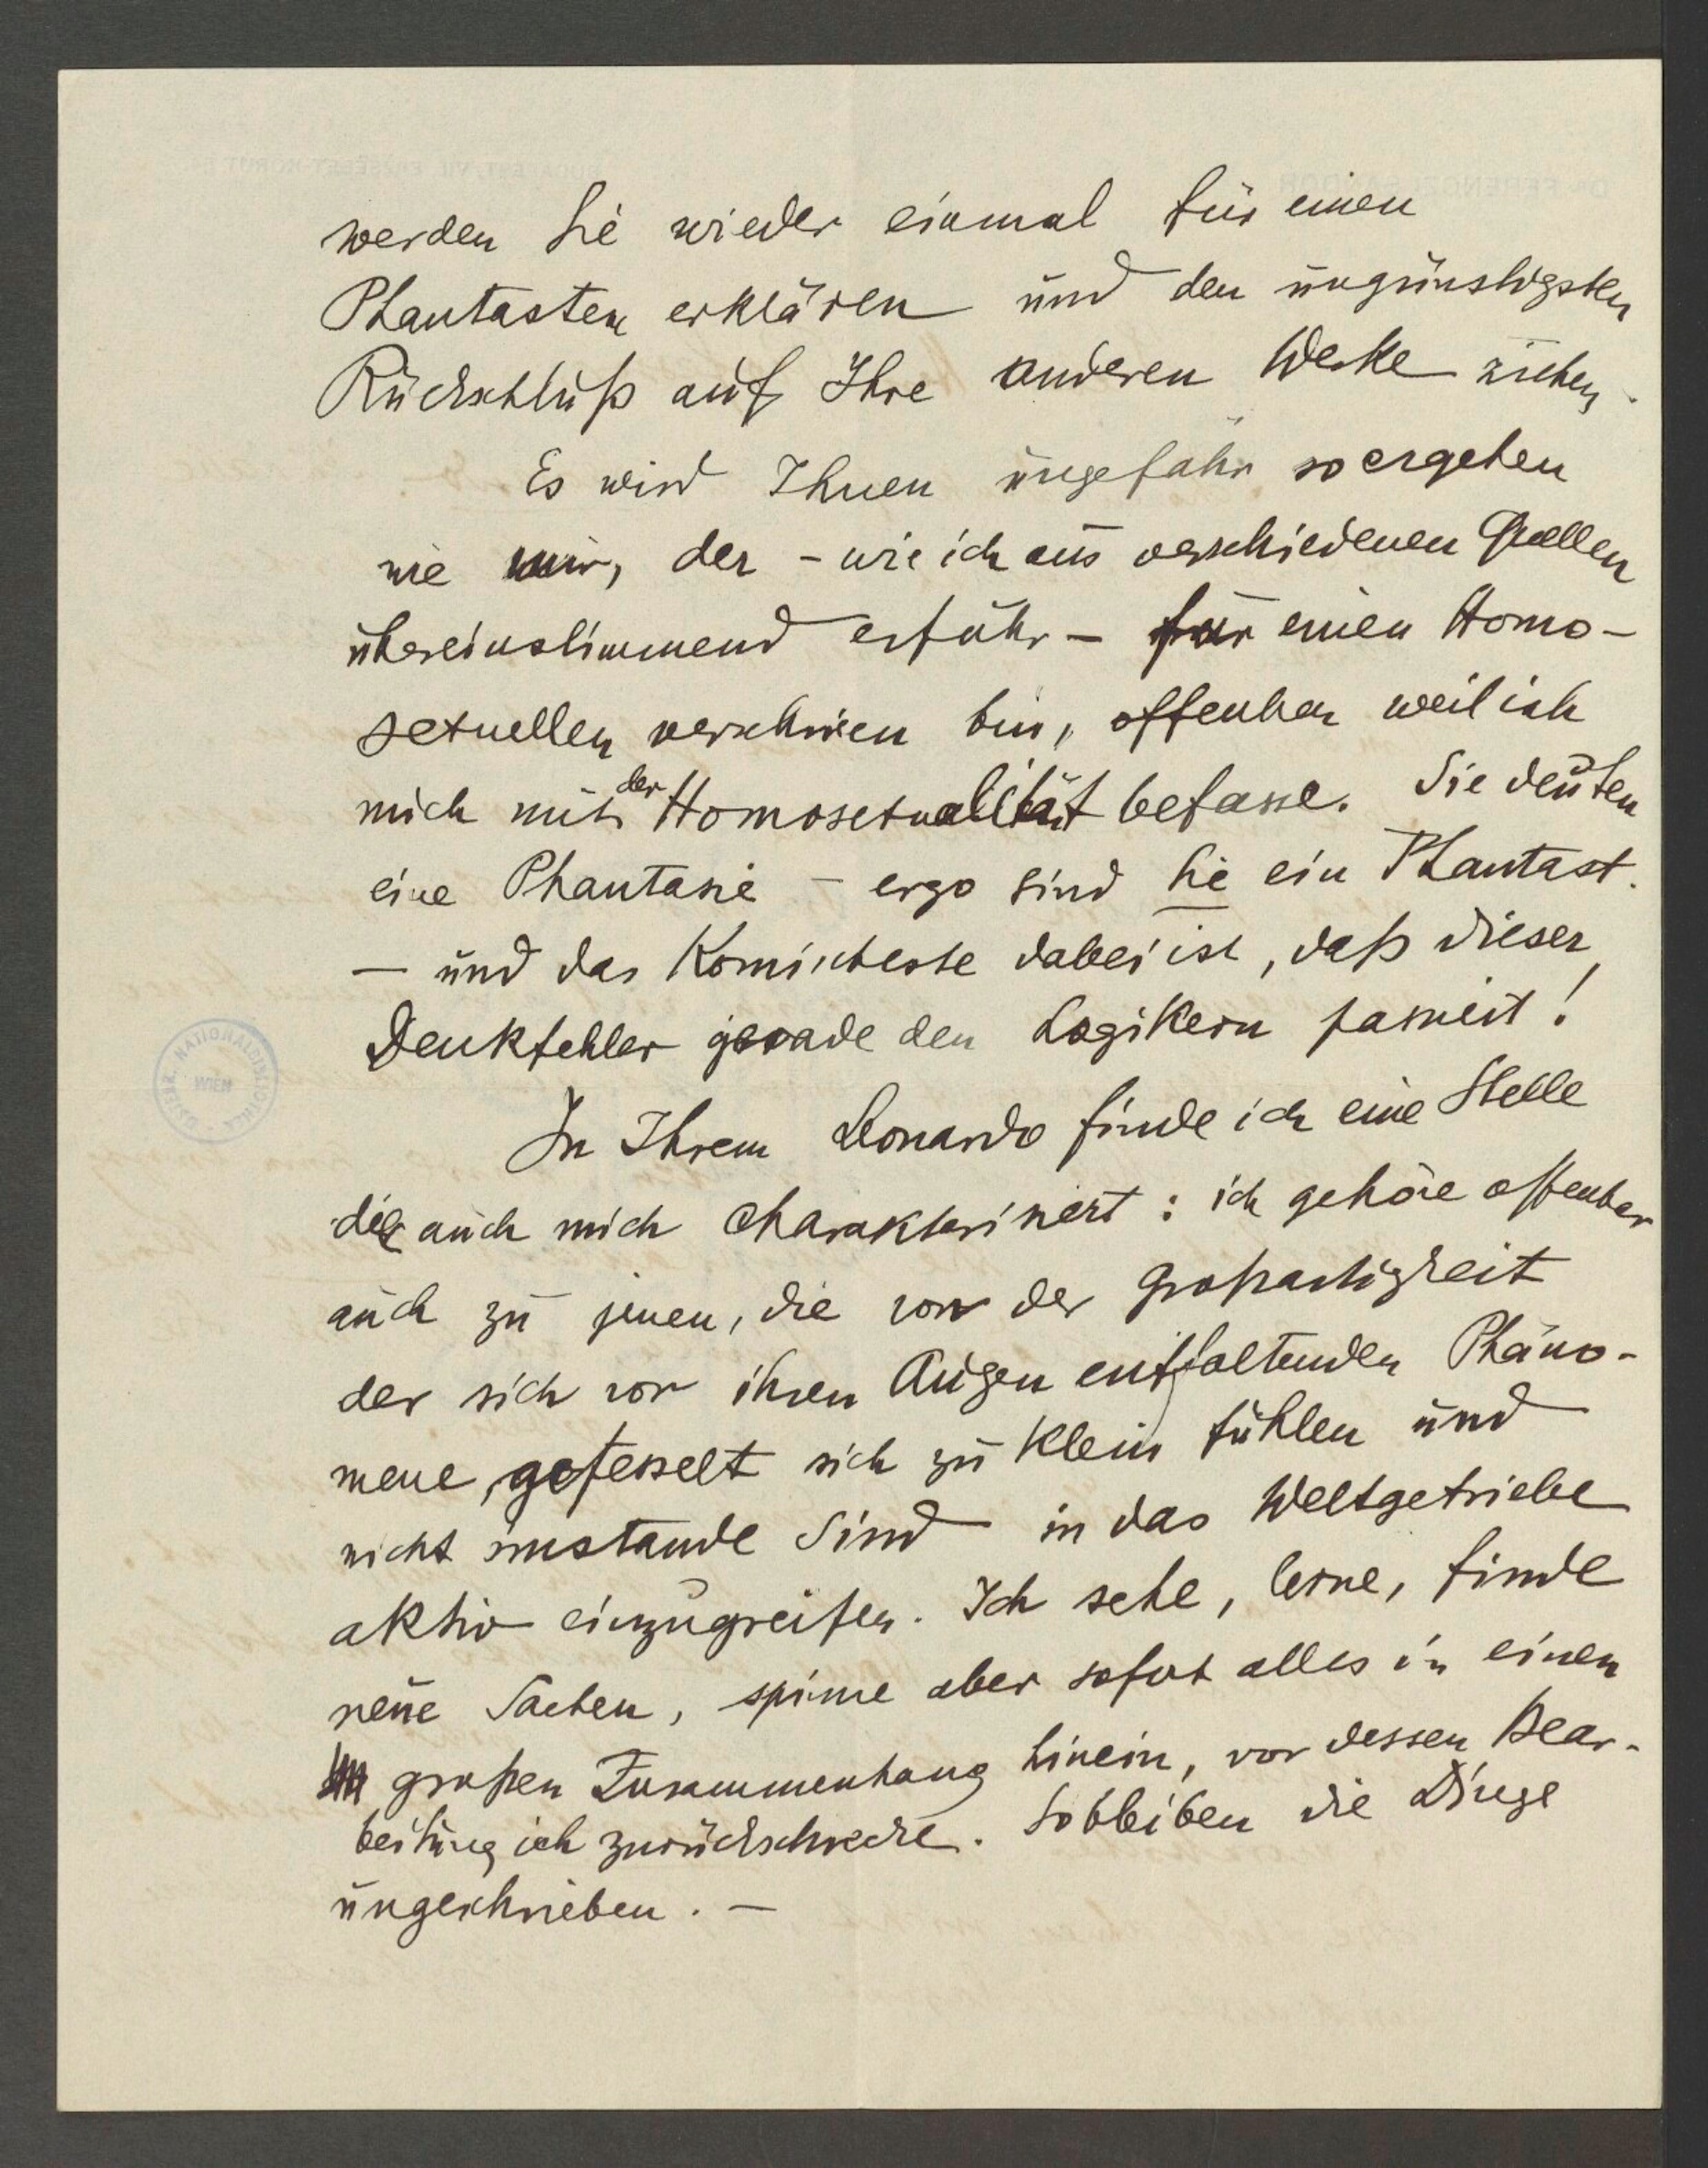 werden Sie wieder einmal für einen
Phantasten erklären und den ungünstigsten
Rückschluß auf Ihre anderen Werke ziehen.
Es wird Ihnen ungefähr so ergehen
wie mir, der – wie ich aus verschiedenen Quellen
übereinstimmend erfuhr – für einen Homo-
sexuellen verschrieen bin, offenbar weil ich
mich mit der Homosexualität befasse. Sie deuten
eine Phantasie – ergo sind Sie ein Phantast.
– und das Komischeste dabei ist, daß dieser
Denkfehler gerade den Logikern passiert!
In Ihrem Leonardo finde ich eine Stelle
die auch mich charakterisiert: ich gehöre offenbar
auch zu jenen, die von der Großartigkeit
der sich vor ihren Augen entfaltenden Phäno-
mene, gefesselt sich zu klein fühlen und
nicht imstande sind in das Weltgetriebe
aktiv einzugreifen. Ich sehe, lerne, finde
neue Sachen, spinne aber sofort alles in einen
großen Zusammenhang hinein, vor dessen Bear-
beitung ich zurückschrecke. So bleiben die Dinge
ungeschrieben. –
NATIONALBIBLIOTHEK
WIEN